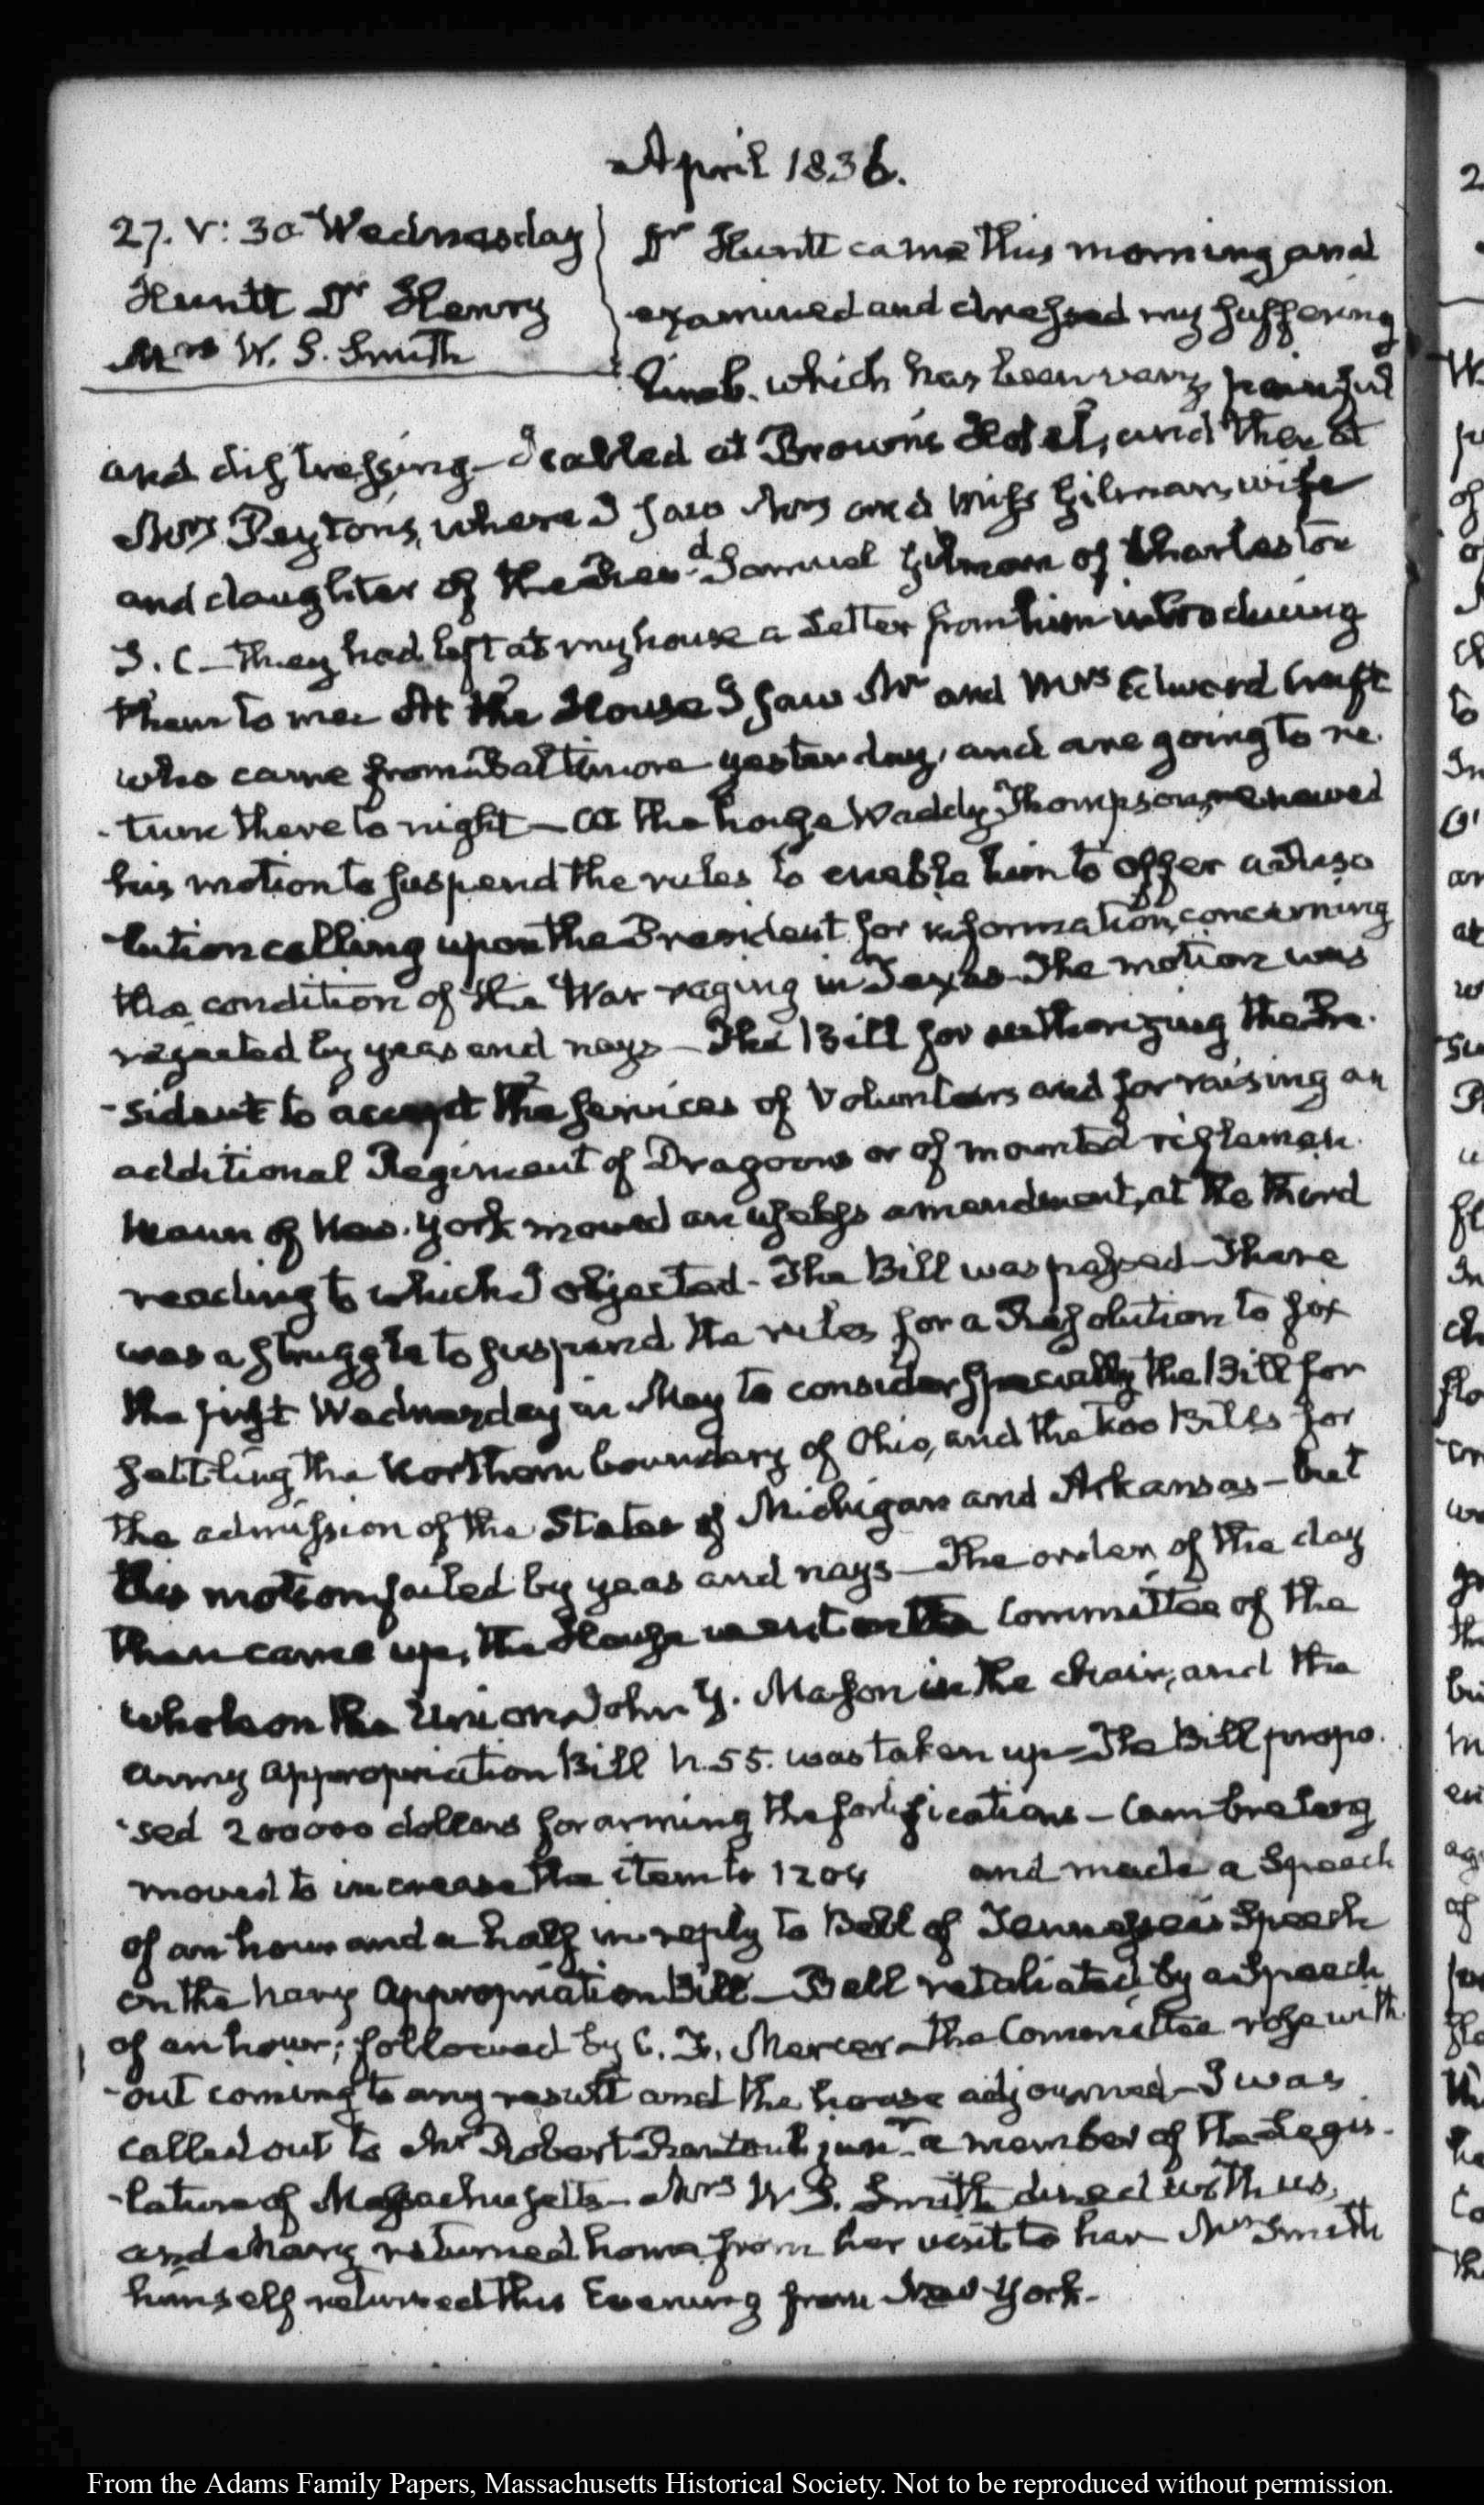 April 1836.
27. V: 30 Wednesday
Huntt Dr Henry
Mrs W. S. Smith
Dr Huntt came this morning and
examined and dressed my suffering
limb. which has been very painful
and distressing — I called at Brown's Hotel, and then at
Mrs Peyton's, where I saw Mrs and Miss Gilman, wife
and daughter of the Revd Samuel Gilman of Charleston
S. C — They had left at my house a Letter from him introducing
them to me. At the House I saw Mr and Mrs Edward Craft
who came from Baltimore yesterday, and are going to re-
-turn there to night — At the house Waddy Thompson, renewed
his motion to suspend the rules to enable him to offer a Reso
-lution calling upon the President for information, concerning
the condition of the War raging in Texas — The motion was
rejected by yeas and nays — The Bill for authorizing the Pre-
-sident to accept the services of Volunteers and for raising an
additional Regiment of Dragoons or of mounted riflemen.
Mann of New-York moved an useless amendment, at the third
reading to which I objected - The Bill was passed — There
was a struggle to suspend the rules for a Resolution to fix
the first Wednesday in May to consider specially the Bill for
settling the Northern boundary of Ohio, and the two Bills for
the admission of the States of Michigan and Arkansas — but
this motion failed by yeas and nays — The orders of the day
then came up, the House went into Committee of the
whole on the Union, John Y. Mason in the chair, and the
Army appropriation Bill N. 55. was taken up — The Bill propo-
-sed 200000 dollars for arming the fortifications — Cambreleng
moved to increase the item to 1204 and made a Speech
of an hour and a half in reply to Bell of Tennessee's Speech
on the Navy Appropriation Bill — Bell retaliated by a Speech
of an hour; followed by C. F. Mercer — The Committee rose with
-out coming to any result and the house adjourned — I was
called out to Mr Robert Rantoul junr a member of the Legis-
-lature of Massachusetts — Mrs W S. Smith dined with us,
and Mary returned home from her visit to her Mr Smith
himself returned this Evening from New York -
From the Adams Family Papers, Massachusetts Historical Society. Not to be reproduced without permission.